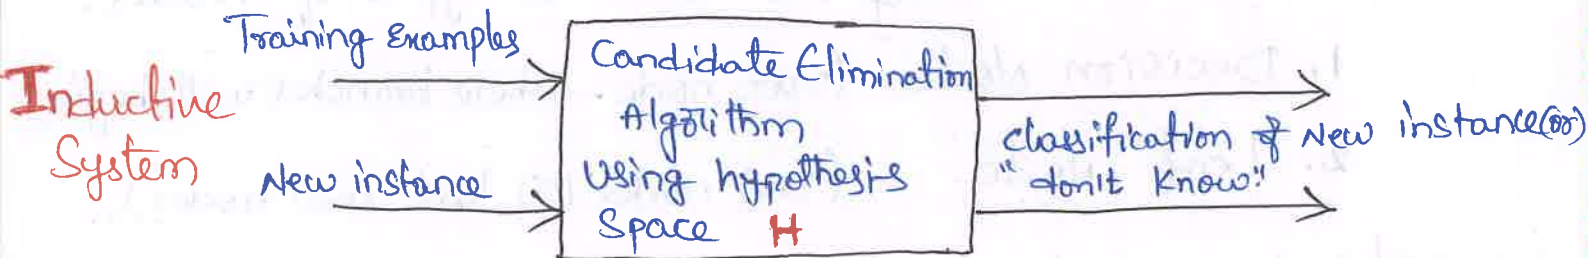 Inductive
System
Training Examples
New instance
Candidate Elimination
Algorithm
Using hypothesis
Space H
classification of New instance(or)
"don't know"